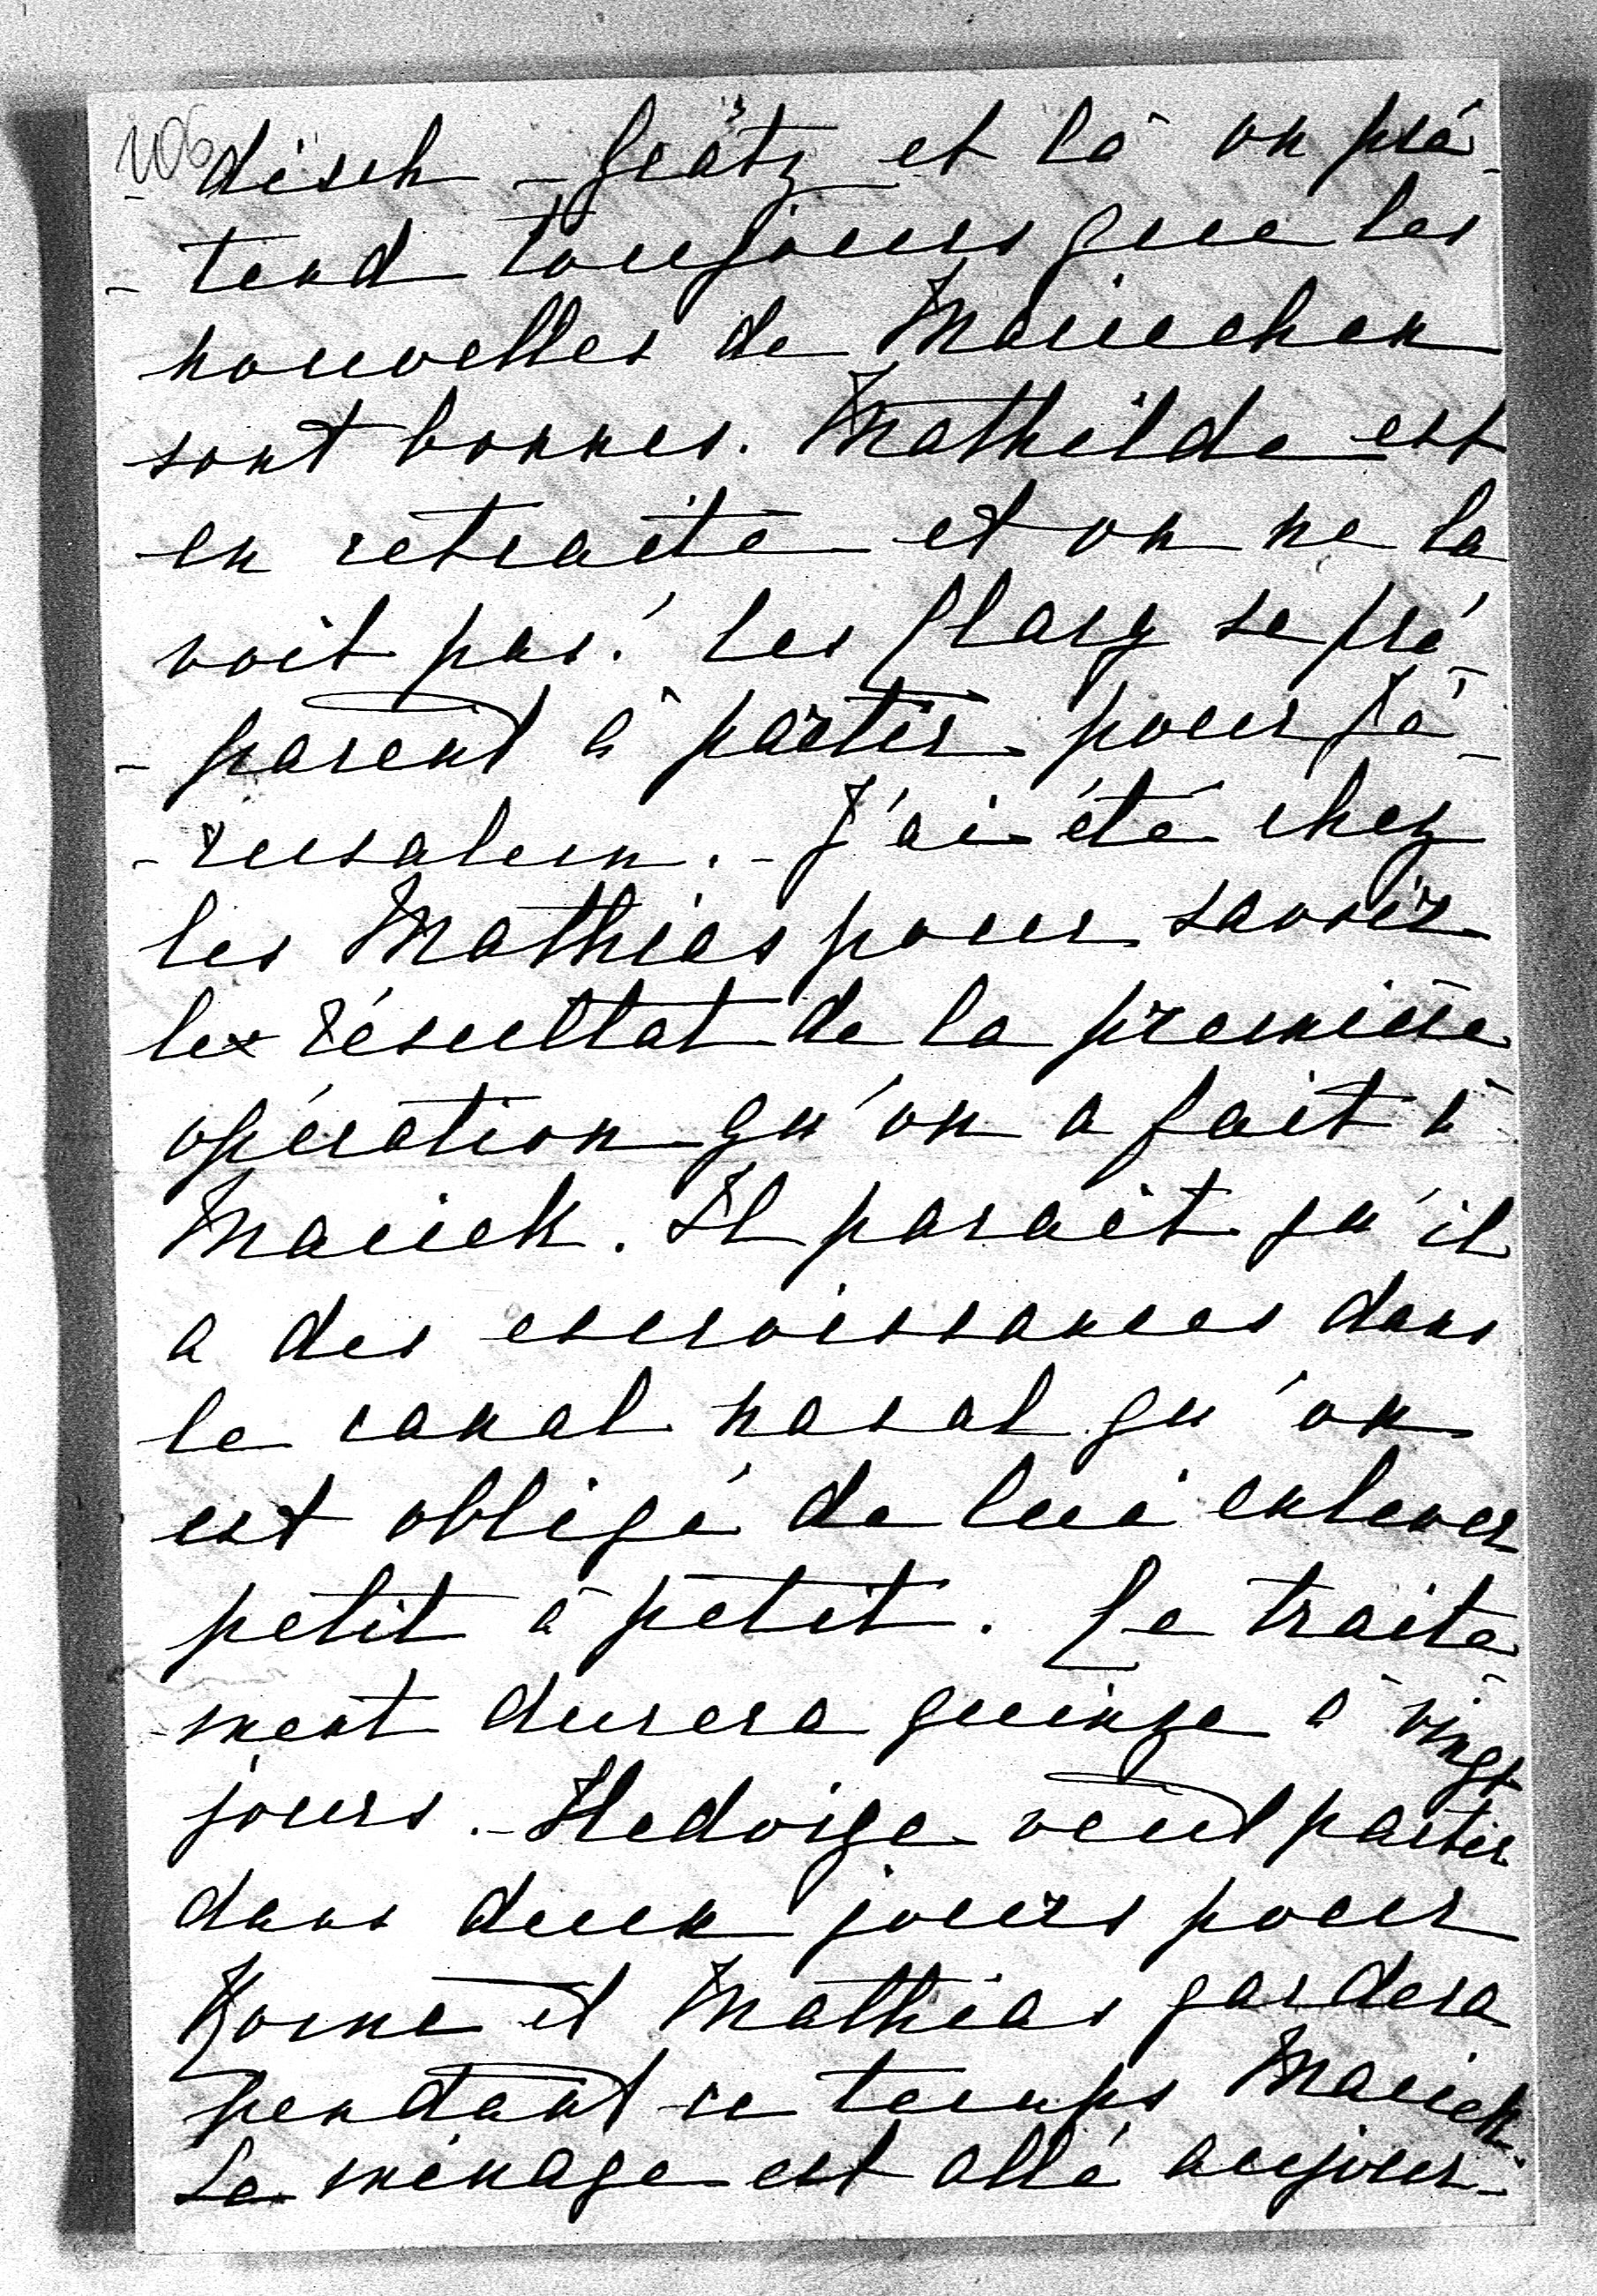 106
-disch-Grätz et là on pré-
-tend toujours que les
nouvelles de Mariechen
sont bonnes. Mathilde est
en retraite et on ne la
voit pas! Les Clary se pré-
-parent à partir pour Jé-
-rusalem. - J'ai été chez
les Mathias pour savoir
le résultat de la première
opération qu'on a fait à
Maciek. Il parait qu'il
a des excroissances dans
le canal nasal qu'on
est obligé de lui enlever
petit à petit. Le traite-
-ment durera quinze à vingt
jours. - Hedwige veut partir
dans deux jours pour
Rome et Mathias gardera
pendant ce temps Maciek.
Le ménage est allé aujour-